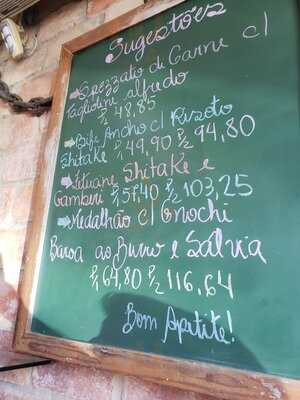 Sugestões
Spezzato di Carne c/
Tagliolini alfredo
P/1 48,85
Bife Ancho c/ Risoto
Shitake P/1 49,90 P/2 94,80
Fetucine Shitake e
Gamberi P/1 57,40 P/2 103,25
Medalhão c/ Gnochi
Baroa ao Burro e Sálvia
P/1 64,80 P/2 116,64
Bom Apitite!